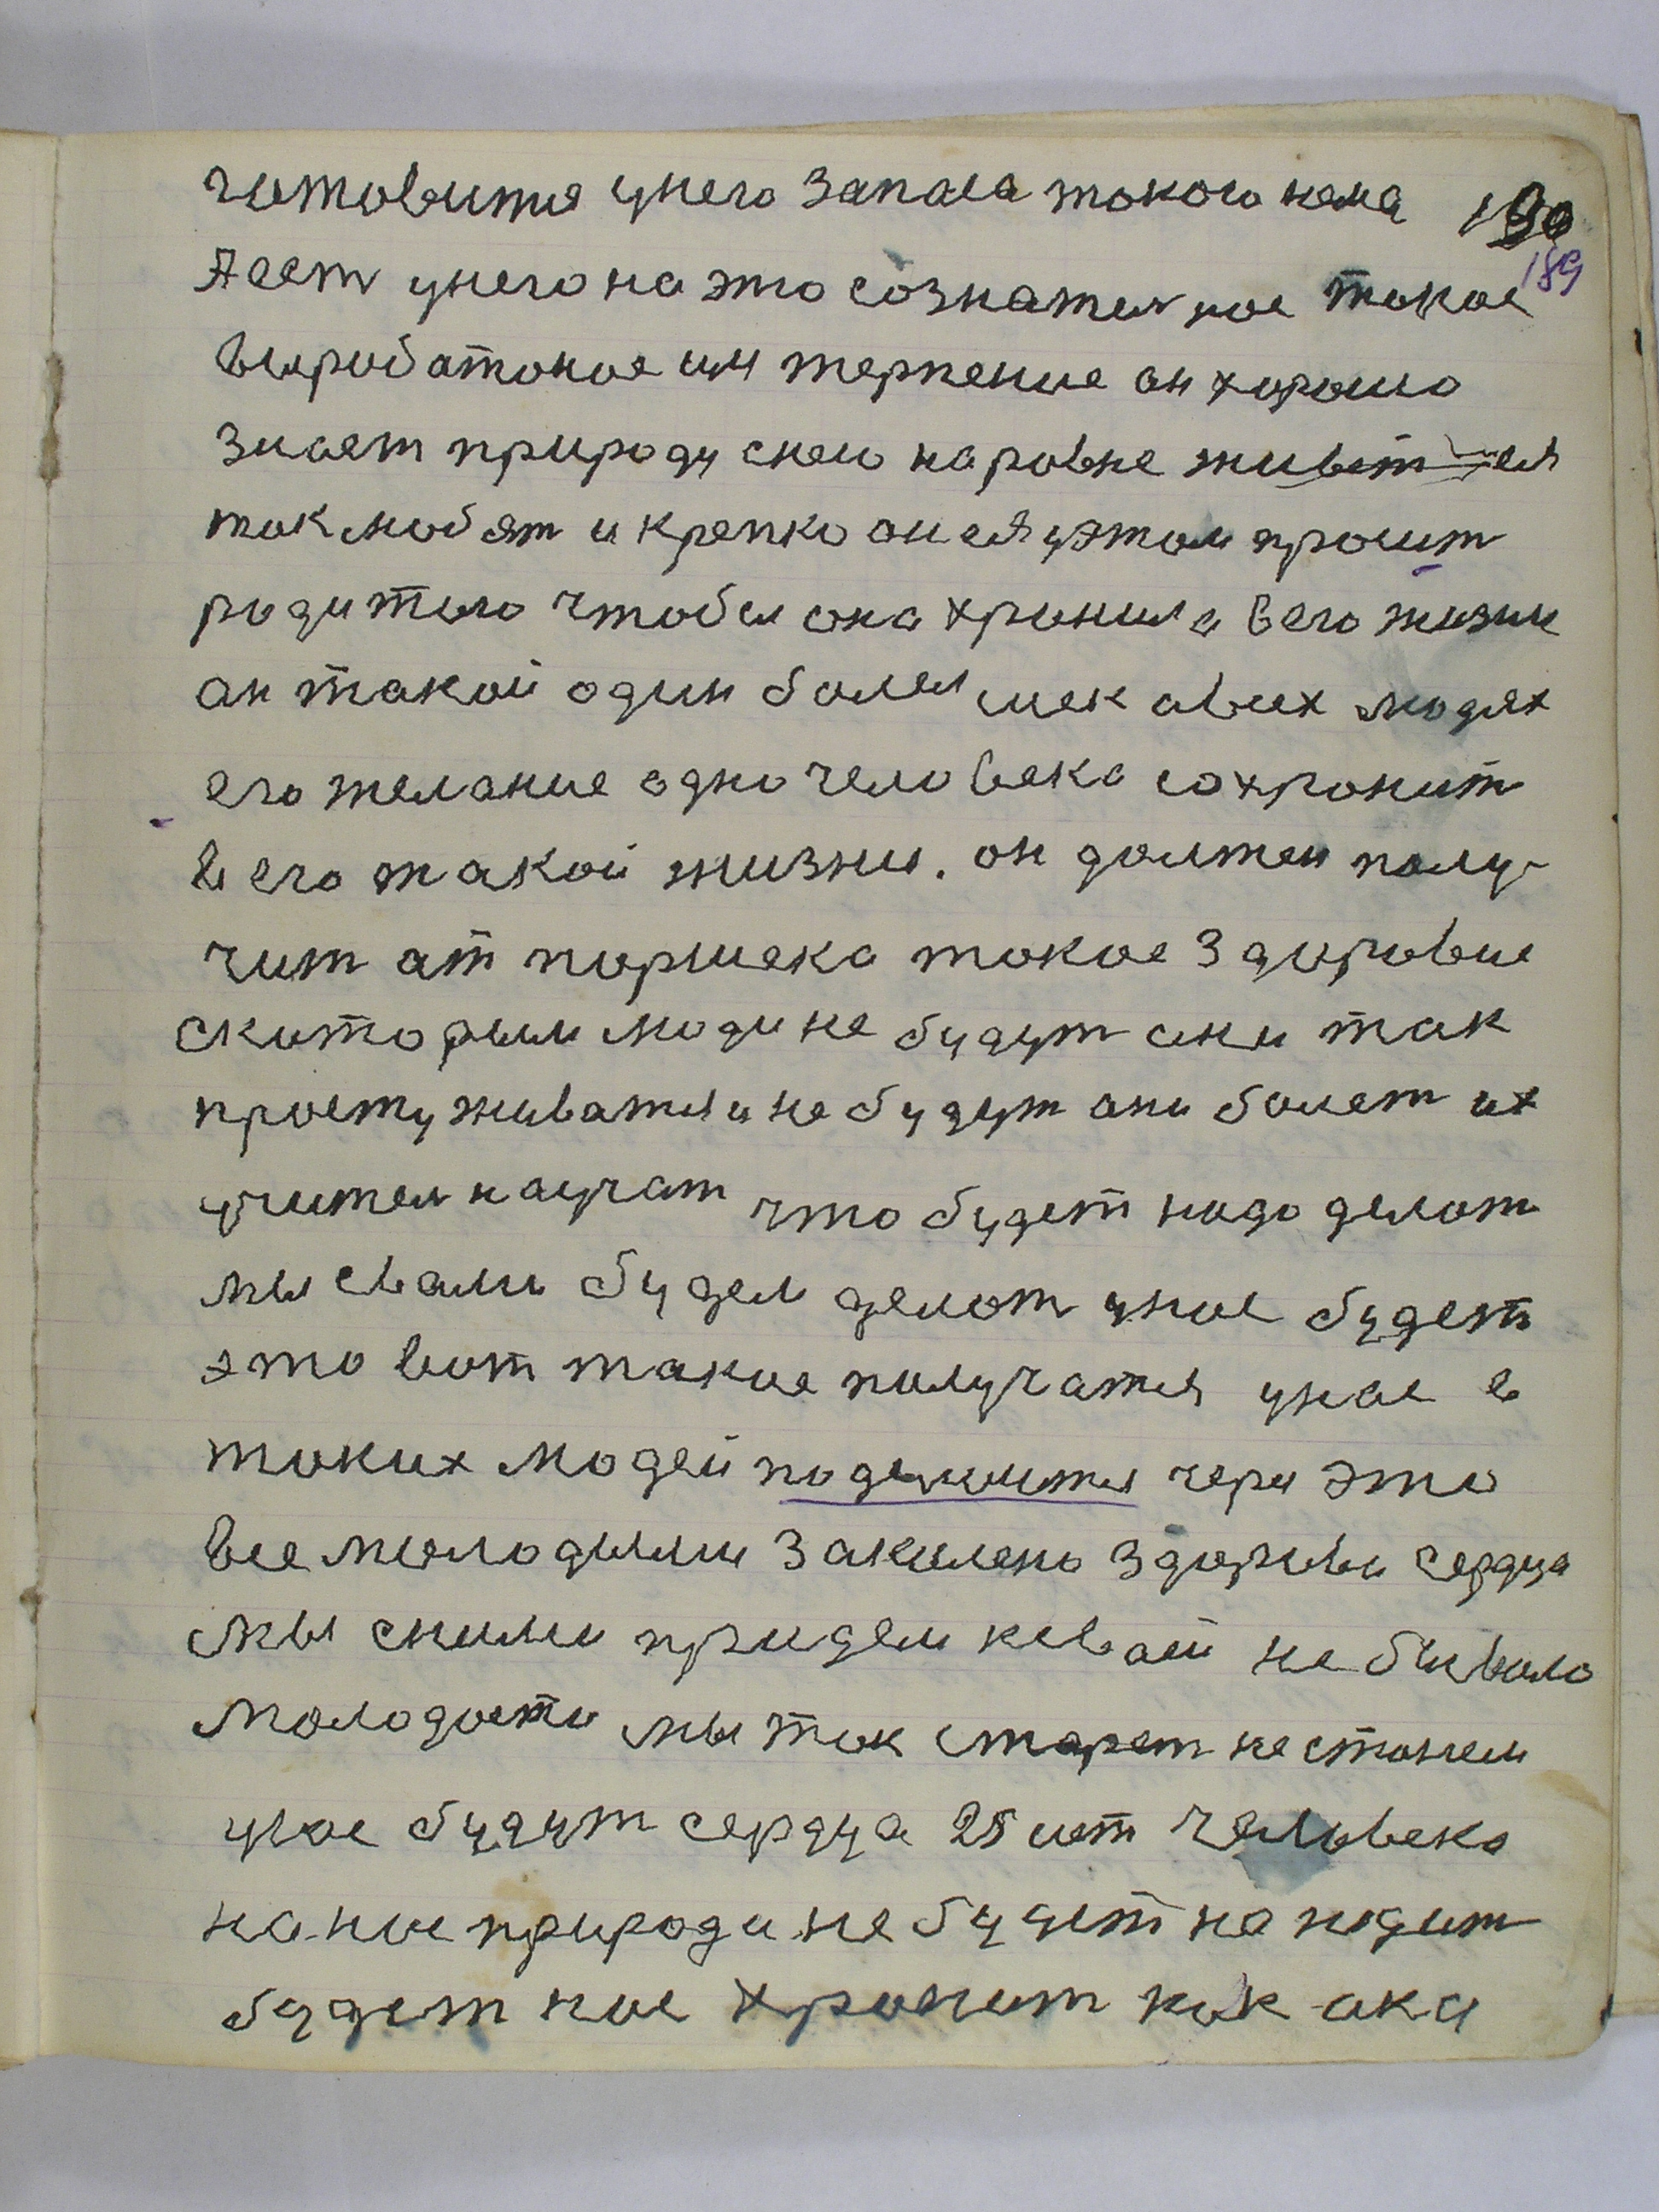 готовится унего запаса токого нема 190
189
А ест унего на это сознателное токое
выроботоное им терпение он хорошо
знает природу снею наровне живет ее
так любят и крепко он ее у этом просит
родителю чтобы она хронила вего жизни
он такой один болеет освех людях
его желание одно человека сохронит
вего такой жизни. он должен полу-
чит от поршека токое здоровие
скоторым люди не будут они так
простуживатся и не будут они болет их
учител научат что будет надо делот
мы свами будем делот унос будет
это вот такое получатся унас в
токих людей поделится через это
все молодыми закалено здоровы сердца
мы сними придем ковсей не бывало
молодости мы так старет не станем
унос будут сердца 25 лет человека
на нос природа не будет нападит
будет нос хронит как ока